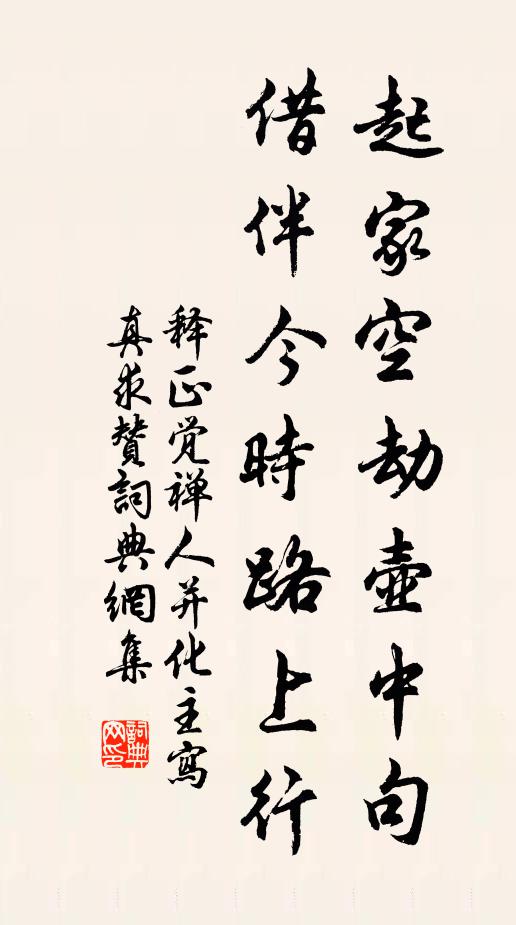 起家空劫壺中句
借伴今時路上行
释正觉禅人并化主寫
真求贊詞典網集
詞典
网印